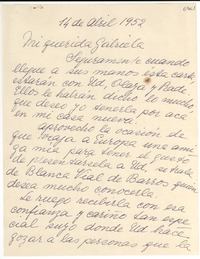 14 de Abril 1952
Mi querida Gabriela
Seguramente cuando
llegue a sus manos esta carta
estarán con Ud,
Ellos le habrán dicho lo mucho
que deseo yo tenerla por acá
en mi casa nueva.
Aprovecho la ocasión de
que viaja a Europa una ami
ga mía para tener el gusto
de presentársela a Ud, se trata
de Blanca Vial de Barros quien
desea mucho conocerla.
Le ruego recibirla con esa
confianza y cariño tan espe
cial suyo donde Ud hace
gozar a las personas que la